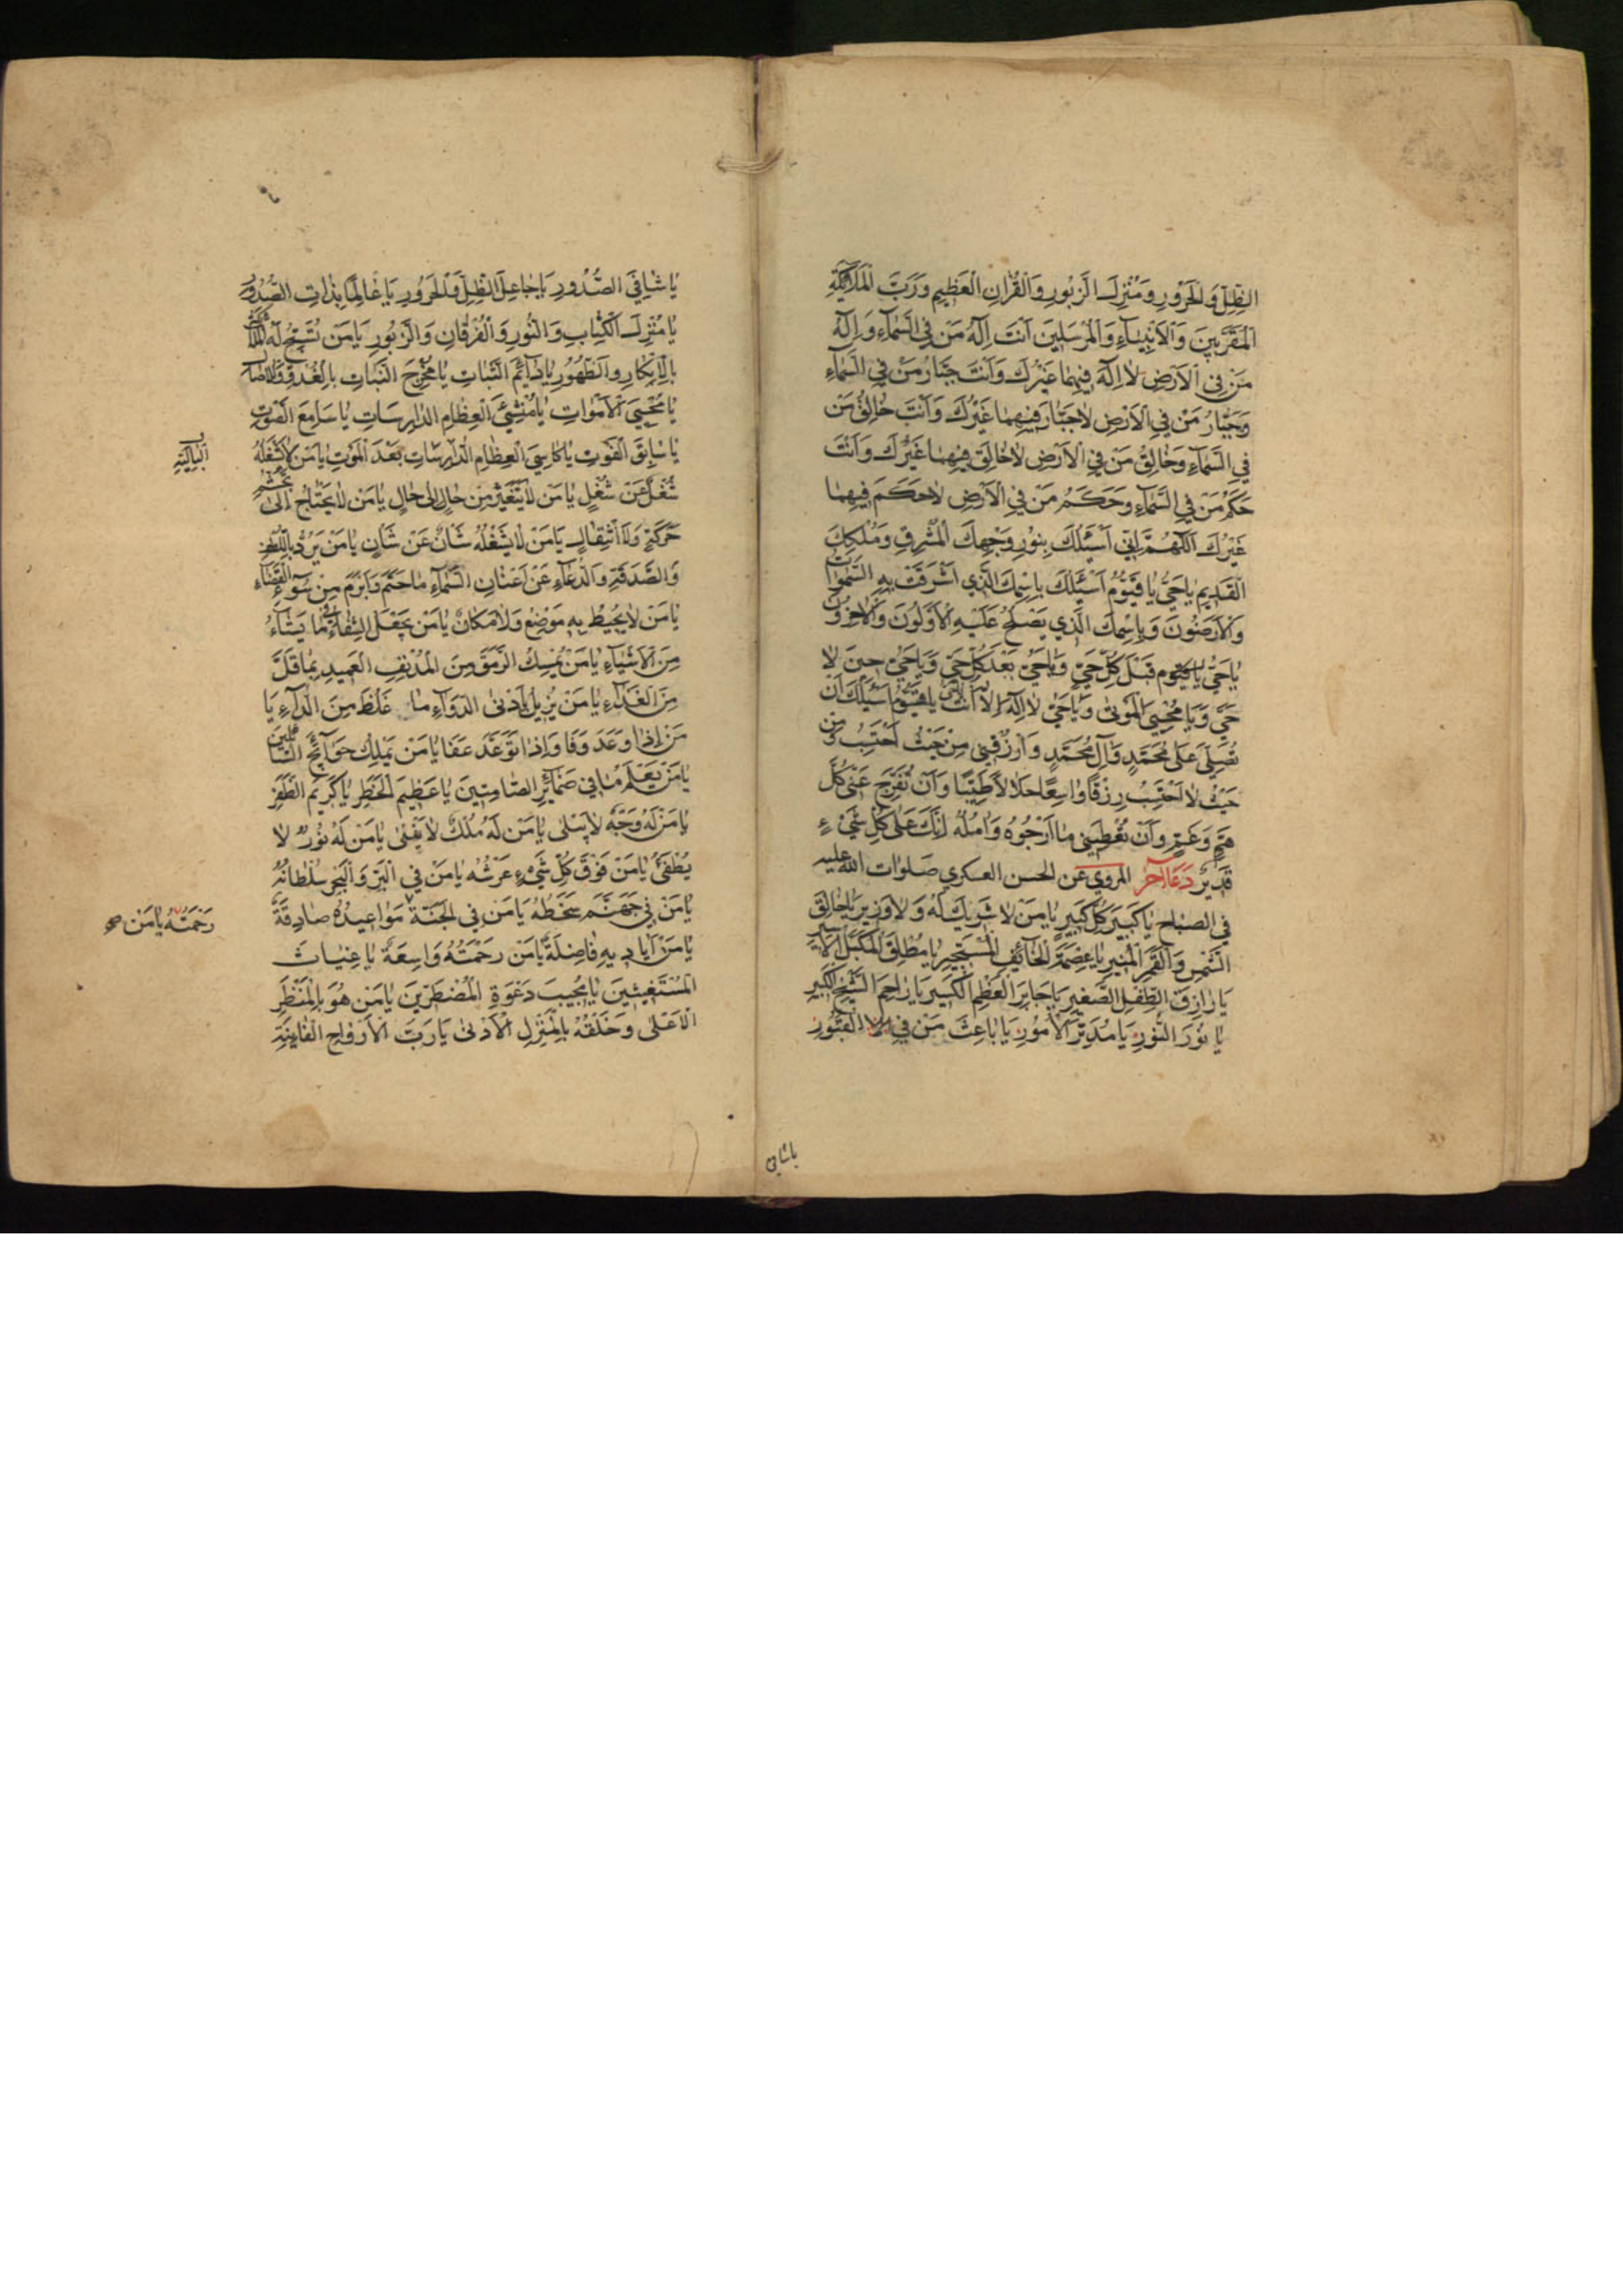 الظِّلِّ وَالْحَرُورِ وَمُنْزِلَ الزَّبُورِ وَالْقُرْانِ الْعَظِيمِ وَرَبَّ الْمَلَآئِكَةِ
الْمُقَرَّبِينَ وَالْأَنْبِيَآءِ وَالْمُرْسَلِينَ اَنْتَ اِلٰهُ مَنْ فِي السَّمَآءِ وَاِلٰهُ
مَنْ فِي الْاَرْضِ لَا اِلٰهَ فِيهِمَا غَيْرُكَ وَاَنْتَ جَبَّارُ مَنْ فِي السَّمَآءِ
وَجَبَّارُ مَنْ فِي الْاَرْضِ لَا جَبَّارَ فِيهِمَا غَيْرُكَ وَاَنْتَ خَالِقُ مَنْ
فِي السَّمَآءِ وَخَالِقُ مَنْ فِي الْاَرْضِ لَا خَالِقَ فِيهِمَا غَيْرُكَ وَاَنْتَ
حَكَمُ مَنْ فِي السَّمَآءِ وَحَكَمُ مَنْ فِي الْاَرْضِ لَا حَكَمَ فِيهِمَا
غَيْرُكَ اَللّٰهُمَّ اِنِّي اَسْئَلُكَ بِنُورِ وَجْهِكَ الْمُشْرِقِ وَمُلْكِكَ
الْقَدِيمِ يَا حَيُّ يَا قَيُّومُ اَسْئَلُكَ بِاسْمِكَ الَّذِي اَشْرَقَتْ بِهِ السَّمٰوَاتُ
وَالْاَرَضُونَ وَبِاسْمِكَ الَّذِي يَصْلَحُ عَلَيْهِ الْاَوَّلُونَ وَالْاٰخِرُونَ
يَا حَيُّ يَا قَيُّوم قَبْلَ كُلِّ حَيٍّ وَيَا حَيُّ بَعْدَ كُلِّ حَيٍّ وَيَا حَيُّ حِينَ لَا
حَيَّ وَيَا مُحْيِيَ الْمَوْتٰى وَيَا حَيُّ لَا اِلٰهَ اِلَّا اَنْتَ يَا حَيُّ يَا قَيُّومُ اَسْئَلُكَ اَنْ
تُصَلِّيَ عَلٰى مُحَمَّدٍ وَاٰلِ مُحَمَّدٍ وَارْزُقْنِي مِنْ حَيْثُ اَحْتَسِبُ وَمِنْ
حَيْثُ لَا اَحْتَسِبُ رِزْقًا وَاسِعًا حَلَالًا طَيِّبًا وَاَنْ تُفَرِّجَ عَنِّي كُلَّ
هَمٍّ وَغَمٍّ وَاَنْ تُعْطِيَنِي مَا اَرْجُوهُ وَاٰمُلُهُ اِنَّكَ عَلٰى كُلِّ شَيْءٍ
قَدِيرٌ دعآء آخر المروي عن الحسن العسكري صلوات الله عليه
في الصباح يَا كَبِيرَ كُلِّ كَبِيرٍ يَا مَنْ لَا شَرِيكَ لَهُ وَلَا وَزِيرَ يَا خَالِقَ
الشَّمْسِ وَالْقَمَرِ الْمُنِيرِ يَا عِصْمَةَ الْخَآئِفِ الْمُسْتَجِيرِ يَا مُطْلِقَ الْمُكَبَّلِ الْاَسِيرِ
يَا رَازِقَ الطِّفْلِ الصَّغِيرِ يَا جَابِرَ الْعَظْمِ الْكَسِيرِ يَا رَاحِمَ الشَّيْخِ الْكَبِيرِ
يَا نُورَ النُّورِ يَا مُدَبِّرَ الْاُمُورِ يَا بَاعِثَ مَنْ فِي الْقُبُورِ
يا شافي
يَا شَافِيَ الصُّدُورِ يَا جَاعِلَ الظِّلِّ وَالْحَرُورِ يَا عَالِمًا بِذَاتِ الصُّدُورِ
يَا مُنْزِلَ الْكِتَابِ وَالنُّورِ وَالْفُرْقَانِ وَالزَّبُورِ يَا مَنْ تُسَبِّحُ لَهُ الْمَلَآئِكَةُ
بِالْاِبْكَارِ وَالظُّهُورِ يَا دَآئِمَ الثَّبَاتِ يَا مُخْرِجَ النَّبَاتِ بِالْغُدُوِّ وَالْاٰصَالِ
يَا مُحْيِيَ الْاَمْوَاتِ يَا مُنْشِئَ الْعِظَامِ الدَّارِسَاتِ يَا سَامِعَ الصَّوْتِ
يَا سَابِقَ الْفَوْتِ يَا كَاسِيَ الْعِظَامِ الدَّارِسَاتِ بَعْدَ الْمَوْتِ يَا مَنْ لَا يَشْغَلُهُ
الْبَالِيَةِ
شُغْلٌ عَنْ شُغْلٍ يَا مَنْ لَا يَتَغَيَّرُ مِنْ حَالٍ اِلٰى حَالٍ يَا مَنْ لَا يَحْتَاجُ اِلٰى تَجَشُّمِ
حَرَكَةٍ وَلَا انْتِقَالٍ يَا مَنْ لَا يَشْغَلُهُ شَأْنٌ عَنْ شَأْنٍ يَا مَنْ يَرُدُّ بِاللُّطْفِ
وَالصَّدَقَةِ وَالدُّعَآءِ عَنْ اَعْنَانِ السَّمَآءِ مَا حَتَمَ وَاَبْرَمَ مِنْ سُوٓءِ الْقَضَآءِ
يَا مَنْ لَا يُحِيطُ بِهِ مَوْضِعٌ وَلَا مَكَانٌ يَا مَنْ يَجْعَلُ الشِّفَآءَ فِيمَا يَشَآءُ
مِنَ الْاَشْيَآءِ يَا مَنْ يُمْسِكُ الرَّمَقَ مِنَ الْمُدْنِفِ الْعَمِيدِ بِمَا قَلَّ
مِنَ الْغِذَآءِ يَا مَنْ يُزِيلُ بِاَدْنَى الدَّوَآءِ مَا غَلُظَ مِنَ الدَّآءِ يَا
مَنْ اِذَا وَعَدَ وَفَا وَاِذَا تَوَعَّدَ عَفَا يَا مَنْ يَمْلِكُ حَوَآئِجَ السَّآئِلِينَ
يَا مَنْ يَعْلَمُ مَا فِي ضَمَآئِرِ الصَّامِتِينَ يَا عَظِيمَ الْخَطَرِ يَا كَرِيمَ الظَّفَرِ
يَا مَنْ لَهُ وَجْهٌ لَا يَبْلٰى يَا مَنْ لَهُ مُلْكٌ لَا يَفْنٰى يَا مَنْ لَهُ نُورٌ لَا
يُطْفَئُ يَا مَنْ فَوْقَ كُلِّ شَيْءٍ عَرْشُهُ يَا مَنْ فِي الْبَرِّ وَالْبَحْرِ سُلْطَانُهُ
يَا مَنْ فِي جَهَنَّمَ سَخَطُهُ يَا مَنْ فِي الْجَنَّةِ مَوَاعِيدُهُ صَادِقَةٌ
رَحْمَتُهُ يَا مَنْ صح
يَا مَنْ اَيَادِيهِ فَاضِلَةٌ يَا مَنْ رَحْمَتُهُ وَاسِعَةٌ يَا غِيَاثَ
الْمُسْتَغِيثِينَ يَا مُجِيبَ دَعْوَةِ الْمُضْطَرِّينَ يَا مَنْ هُوَ بِالْمَنْظَرِ
الْاَعْلٰى وَخَلْقُهُ بِالْمَنْزِلِ الْاَدْنٰى يَا رَبَّ الْاَرْوَاحِ الْفَانِيَةِ